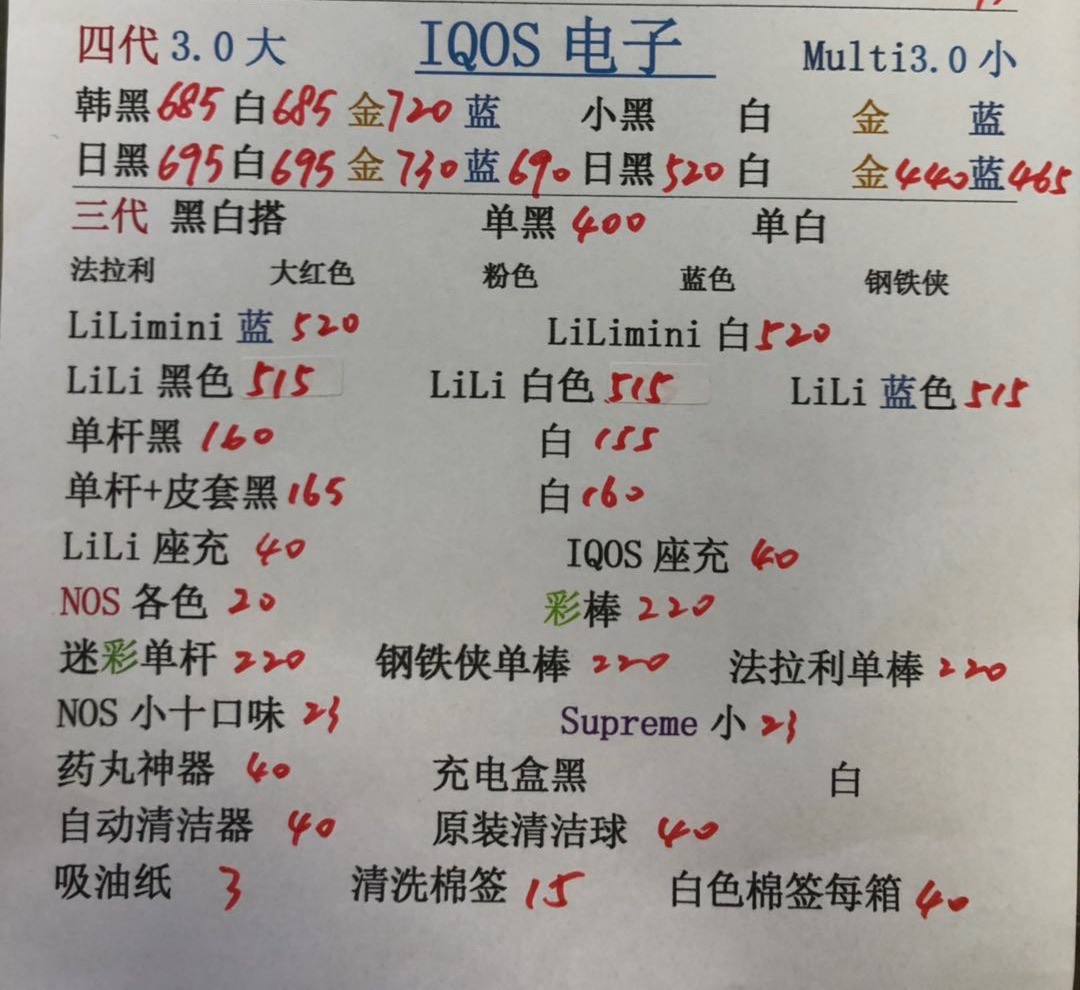 四代 3.0大 IQOS 电子 Multi3.0 小
韩黑 685 白 685 金 720 蓝 小黑 白 金 蓝
日黑 695 白 695 金 730 蓝 690 日黑 520 白 金 440 蓝 465
三代 黑白搭 单黑 400 单白
法拉利 大红色 粉色 蓝色 钢铁侠
LiLimini 蓝 520 LiLimini 白 520
LiLi 黑色 515 LiLi 白色 515 LiLi 蓝色 515
单杆黑 160 白 155
单杆+皮套黑 165 白 160
LiLi 座充 40 IQOS 座充 40
NOS 各色 20 彩棒 220
迷彩单杆 220 钢铁侠单棒 220 法拉利单棒 220
NOS 小十口味 23 Supreme 小 23
药丸神器 40 充电盒黑 白
自动清洁器 40 原装清洁球 40
吸油纸 3 清洗棉签 15 白色棉签每箱 40